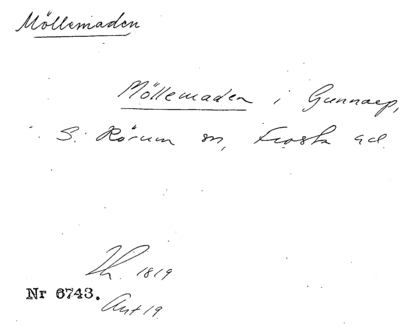 Möllemaden
Möllemaden i Gunnarp,
S. Rörum sn, Frosta hd
Th. 1819
Nr 6743.
Ant 19.